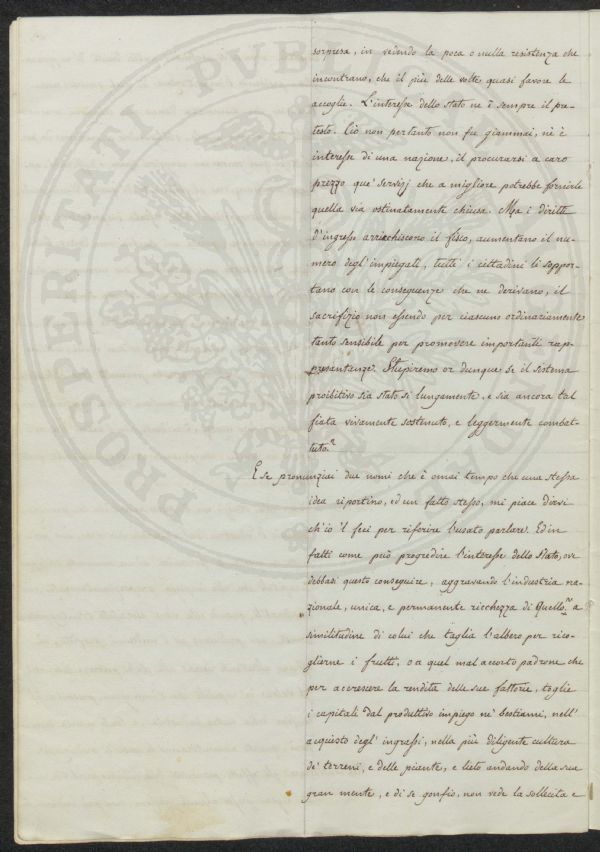 sorpresa, in vedendo la poca o nulla resistenza che
incontrano, che il più delle volte quasi favore le
accoglie. L'interesse dello stato ne è sempre il pre-
testo. Ciò non pertanto non fu giammai, nè è
interesse di una nazione, il procurarsi a caro
prezzo que' servizj che a migliore potrebbe fornirle
quella via ostinatamente chiusa. Ma i diritti
d'ingresso arricchiscono il fisco, aumentano il nu-
mero degl'impiegati, tutti i cittadini li soppor-
tano con le conseguenze che ne derivano, il
sacrifizio non essendo per ciascuno ordinariamente
tanto sensibile per promovere importanti rap-
presentanze. Stupiremo or dunque se il sistema
proibitivo sia stato sì lungamente, e sia ancora tal
fiata vivamente sostenuto, e leggermente combat-
tuto?
E se pronunziai due nomi che è omai tempo che una stessa
idea riportino, ed un fatto stesso, mi piace dirsi
ch'io 'l feci per riferire l'usato parlare. Ed in
fatti come può progredire l'interesse dello Stato, ove
debbasi questo conseguire, aggravando l'industria na-
zionale, unica, e permanente ricchezza di Quello, a
similitudine di colui che taglia l'albero per rico-
glierne i frutti, o a quel mal accorto padrone che
per accrescere la rendita delle sue fattorie, toglie
i capitali dal produttivo impiego ne' bestiami, nell'
acquisto degl'ingrassi, nella più diligente cultura
de' terreni, e delle piante, e lieto andando della sua
gran mente, e di se gonfio, non vede la sollecita e
PROSPERITATI PVBLICAE